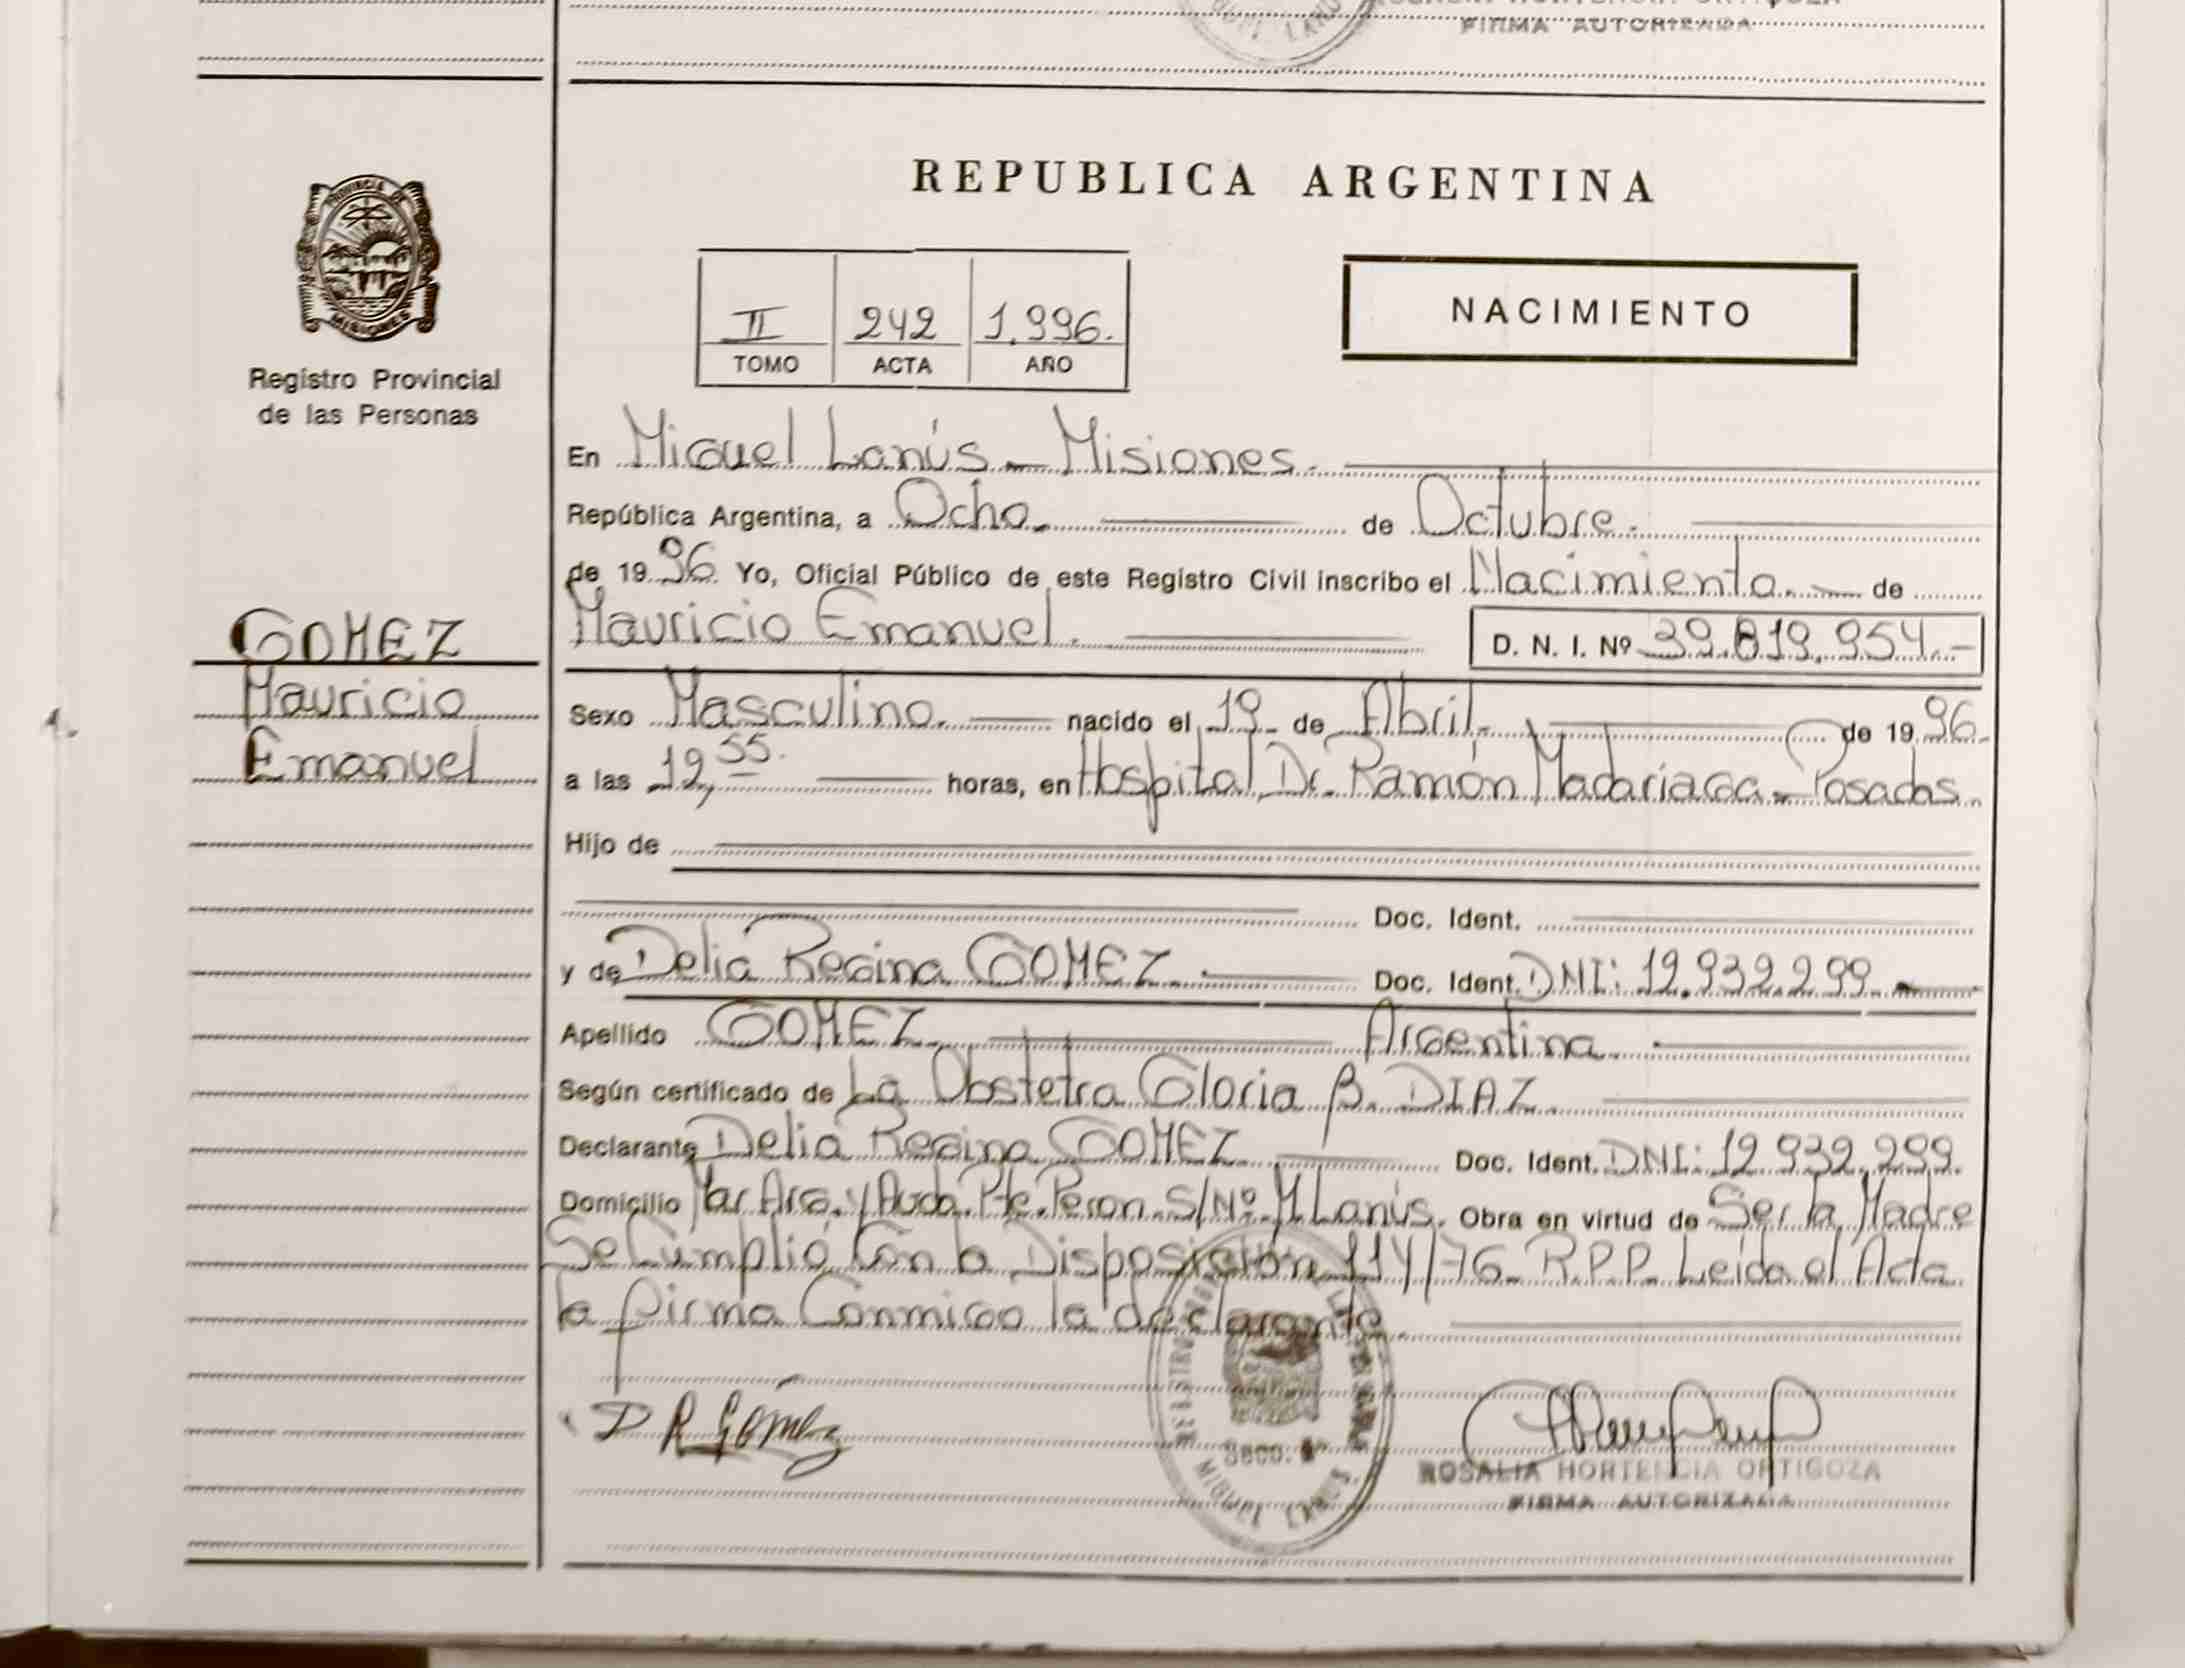 FIRMA AUTORIZADA
REPUBLICA ARGENTINA
PROVINCIA DE
MISIONES
Registro Provincial
de las Personas
II 242 1.996.
TOMO ACTA AÑO
NACIMIENTO
En Miguel Lanús - Misiones.
República Argentina, a Ocho. de Octubre.
de 1996. Yo, Oficial Público de este Registro Civil inscribo el Nacimiento. de
Mauricio Emanuel. D. N. I. Nº 39.819.954.-
GOMEZ
Mauricio
Emanuel
Sexo Masculino. nacido el 19 de Abril. de 1996.
a las 12,55. horas, en Hospital Dr. Ramón Madariaga - Posadas.
Hijo de
Doc. Ident.
y de Delia Regina GOMEZ. Doc. Ident. DNI: 12.932.299.
Apellido GOMEZ. Argentina.
Según certificado de La Obstetra Gloria B. DIAZ.
Declarante Delia Regina GOMEZ Doc. Ident. DNI: 12.932.299.
Domicilio Mar Arg. y Avda. Pte. Peron. S/Nº. M. Lanús. Obra en virtud de Ser la Madre
Se Cumplió Con la Disposición 114/76 R.P.P. Leída el Acta
la firma Conmigo la declarante.
D R Gómez
Secc.
MIGUEL LANUS
ROSALIA HORTENCIA ORTIGOZA
FIRMA AUTORIZADA